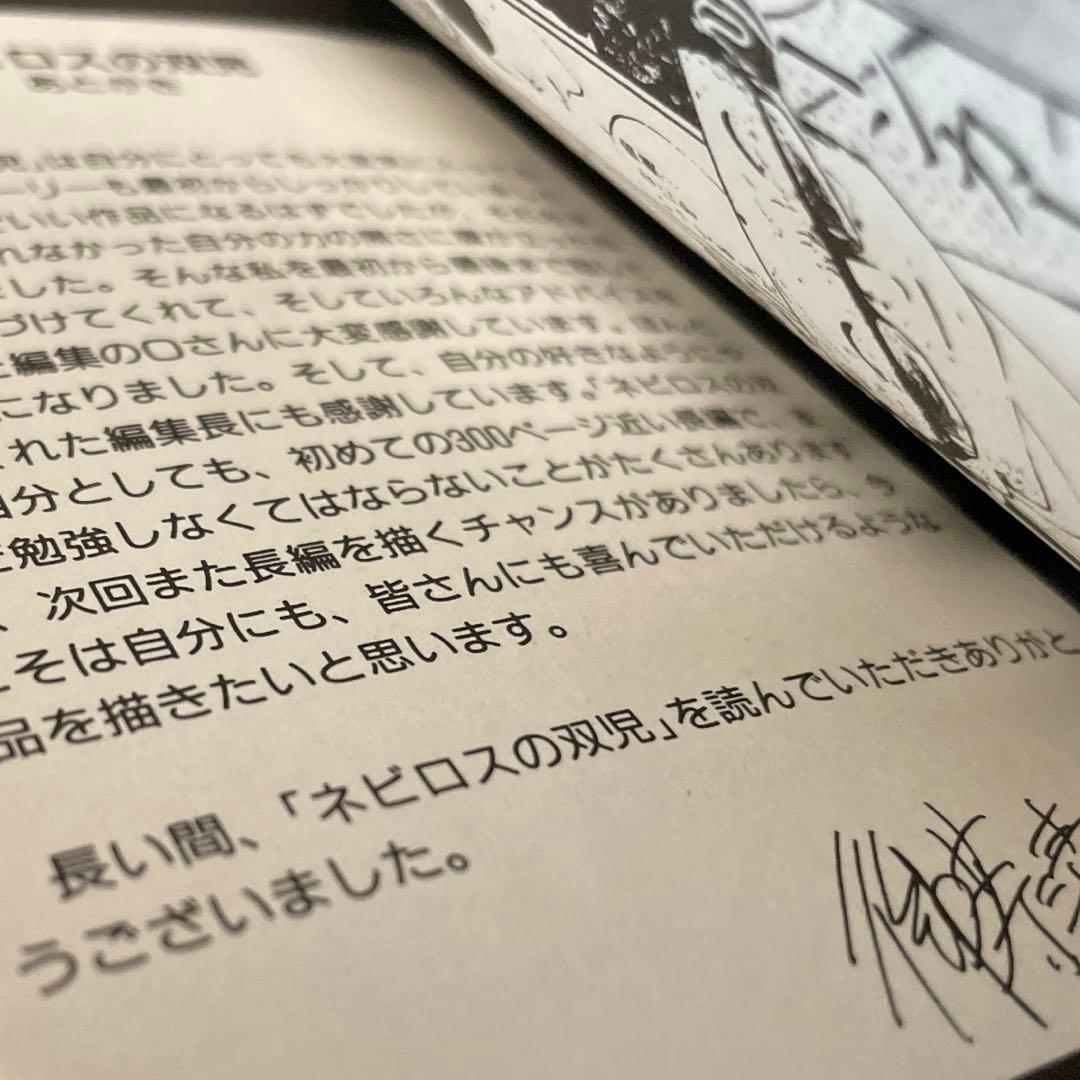 ロスの双児
あとがき
は自分にとっても大
ーリーも最初からしっかりしてい
いい作品になるはずでしたが、
れなかった自分の力の無さに腹が立った
した。そんな私を最初から最後まで
づけてくれて、そしていろんなアドバイスを
編集の〇さんに大変感謝しています。ほんと
になりました。そして、自分の好きなように
れた編集長にも感謝しています。「ネビロスの双
自分としても、初めての300ページ近い長編で、ま
勉強しなくてはならないことがたくさんあります
、次回また長編を描くチャンスがありましたら、今
そは自分にも、皆さんにも喜んでいただけるような
品を描きたいと思います。
長い間、「ネビロスの双児」を読んでいただきありがと
うございました。